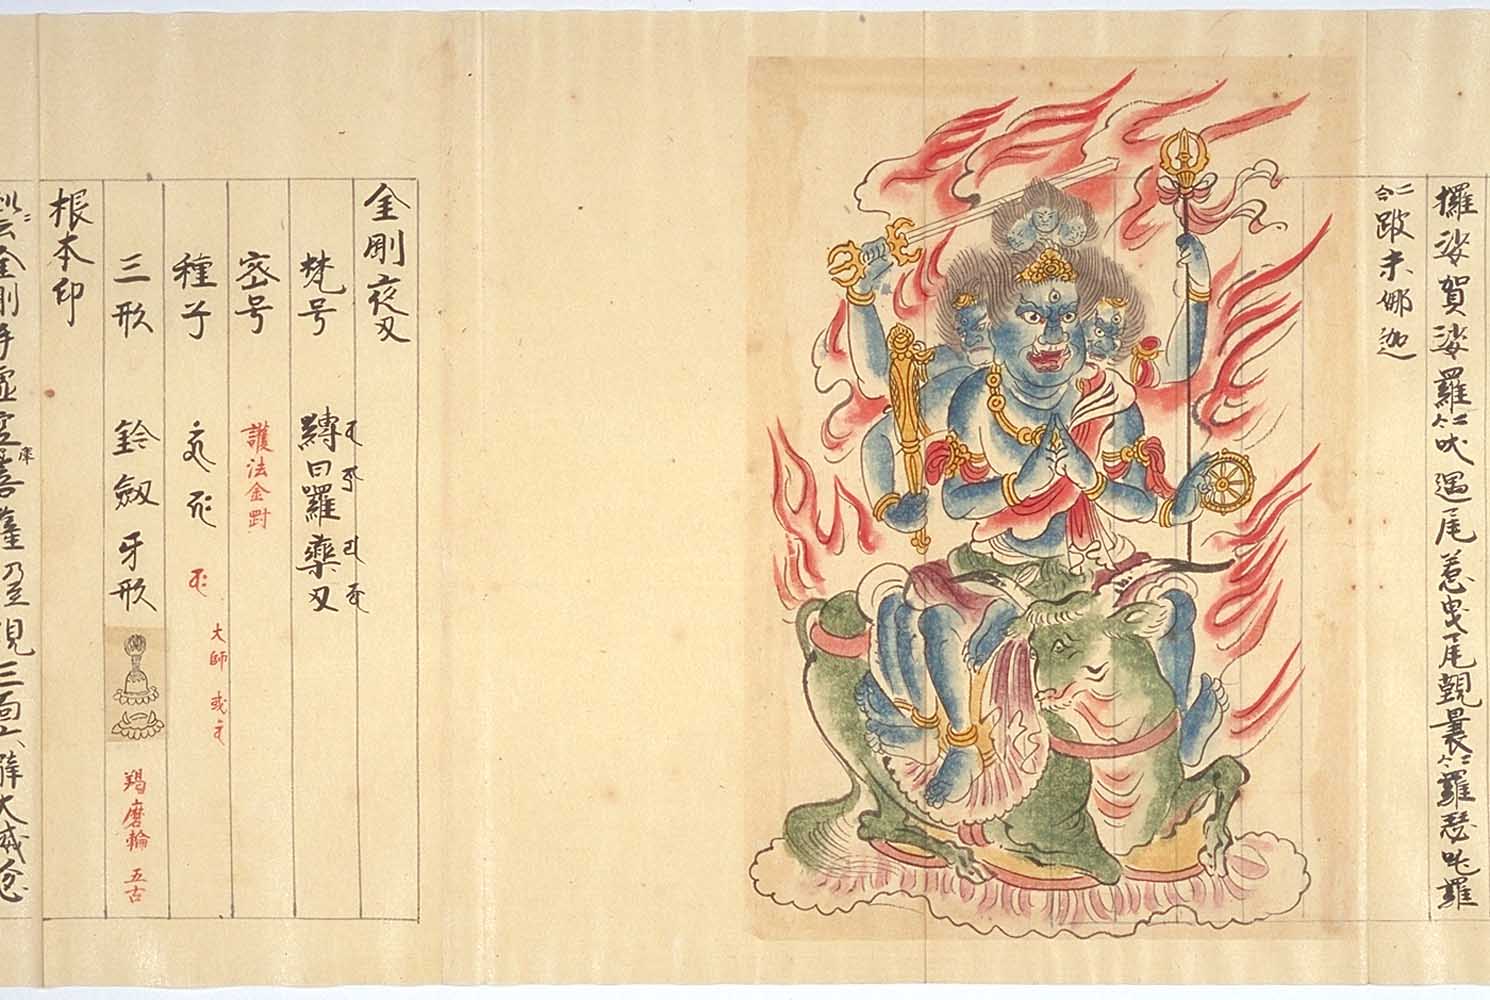 攞娑賀娑羅二合吠遏尾惹曳尾覩曩二合羅瑟吒羅
二合跛末娜迦
金剛夜叉
梵号 縳日羅藥叉
密号 護法金剛
種子
大師 或
三形 鈴劔牙形 羯磨輪 五古
根本印
金剛手虚空庫菩薩乃至現三面六臂大威忿